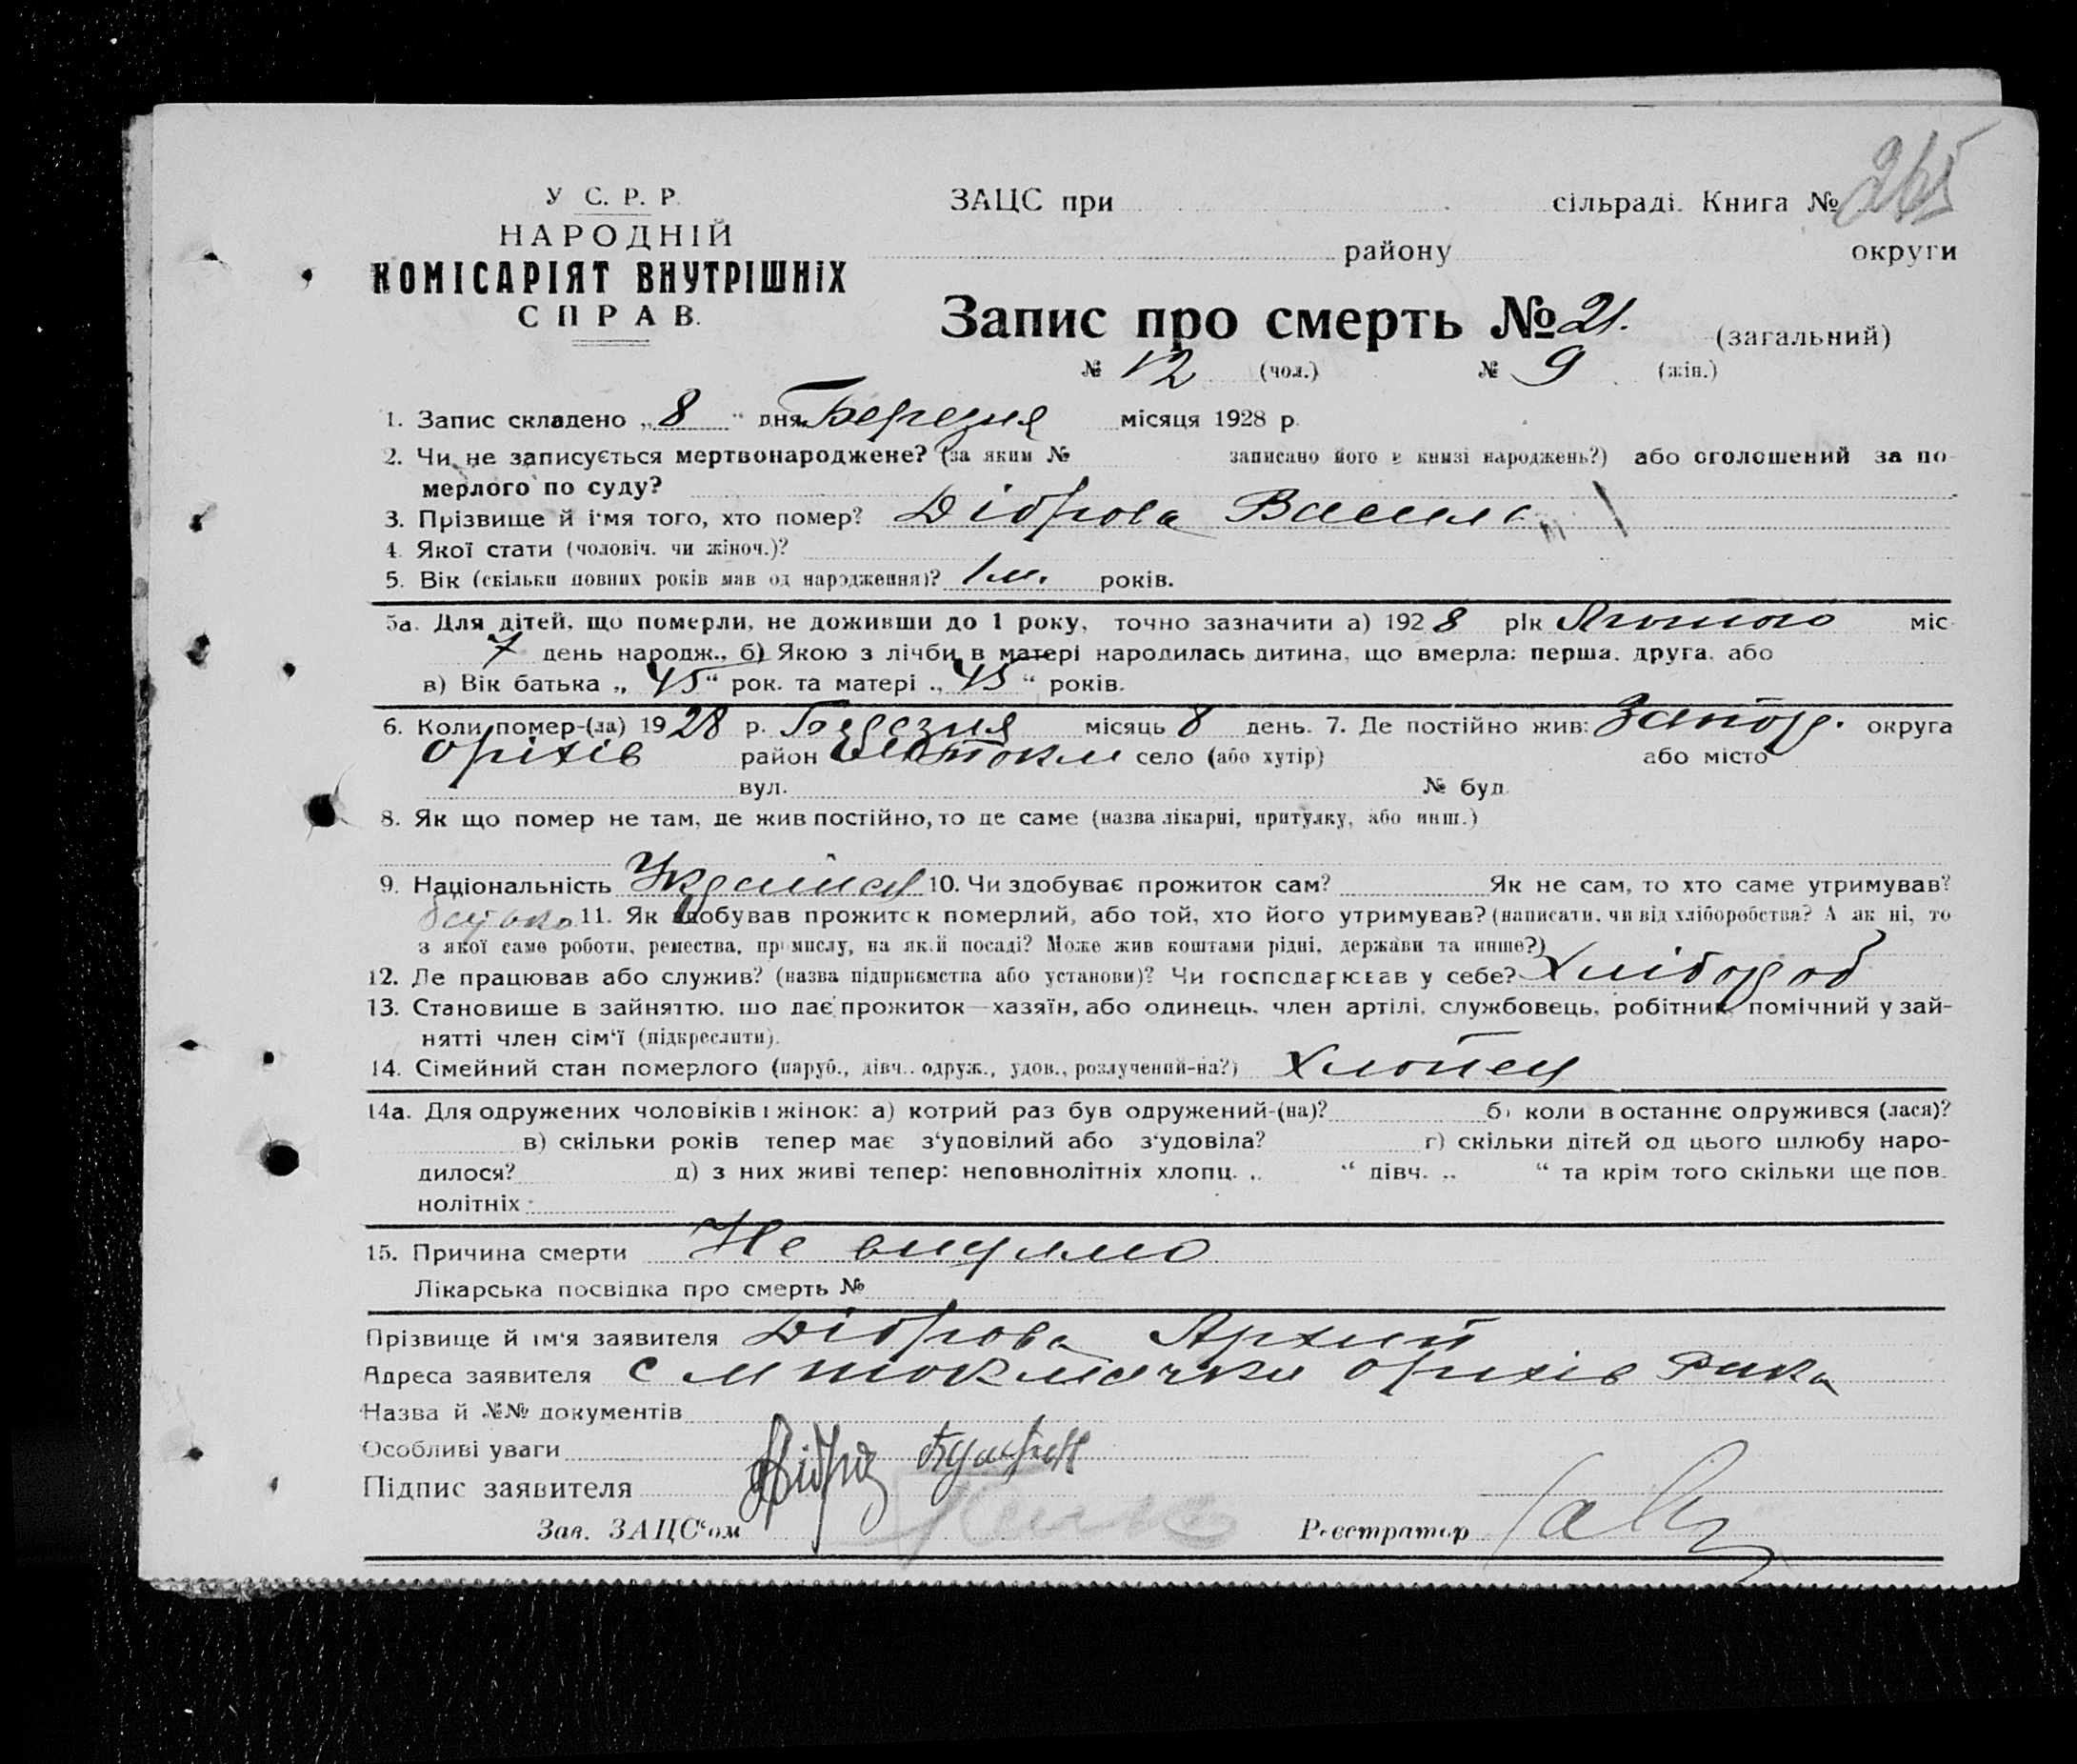 У С. Р. Р.
НАРОДНІЙ
КОМІСАРІЯТ ВНУТРІШНІХ
СПРАВ.
265
ЗАЦС при сільраді. Книга №
району округи
Запис про смерть № 21. (загальний)
№ 12 (чол.) № 9 (жін.)
1. Запис складено „ 8 “ дня Березня місяця 1928 р.
2. Чи не записується мертвонароджене? (за яким № записано його в книзі народжень?) або оголошений за по-
мерлого по суду?
3. Прізвище й і'мя того, хто помер? Діброва Василь
4. Якої стати (чоловіч. чи жіноч.)?
5. Вік (скільки повних років мав од народження)? 1 м. років.
5а. Для дітей, що померли, не доживши до 1 року, точно зазначити а) 1928 рік Лютого міс
7 день народж., б) Якою з лічби в матері народилась дитина, що вмерла: перша, друга, або
в) Вік батька „ 45 “ рок. та матері „ 45 “ років.
6. Коли помер-(ла) 1928 р. Березня місяць 8 день. 7. Де постійно жив: Запор. округа
Оріхів район село (або хутір) або місто
вул. № буд.
8. Як що помер не там, де жив постійно, то де саме (назва лікарні, притулку, або инш.)
9. Національність 10. Чи здобуває прожиток сам? Як не сам, то хто саме утримував?
батько 11. Як здобував прожиток померлий, або той, хто його утримував? (написати, чи від хліборобства? А як ні, то
з якої саме роботи, ремества, промислу, на якій посаді? Може жив коштами рідні, держави та инше?)
12. Де працював або служив? (назва підприємства або установи)? Чи господарював у себе? Хлібороб
13. Становище в зайняттю, що дає прожиток—хазяїн, або одинець, член артілі, службовець, робітник, помічний у зай-
нятті член сім'ї (підкреслити).
14. Сімейний стан померлого (паруб., дівч., одруж., удов., розлучений-на?) Хлопец
14а. Для одружених чоловіків і жінок: а) котрий раз був одружений-(на)? б) коли в останнє одружився (лася)?
в) скільки років тепер має з'удовілий або з'удовіла? г) скільки дітей од цього шлюбу наро-
дилося? д) з них живі тепер: неповнолітніх хлопц. „ “ дівч. „ “ та крім того скільки ще пов-
нолітніх
15. Причина смерти Не видямо
Лікарська посвідка про смерть №
Прізвище й ім'я заявителя Діброва Архип
Адреса заявителя с М Токмачки Оріхів Рика
Назва й №№ документів
Особливі уваги
Підпис заявителя
Зав. ЗАЦС'ом Реєстратор